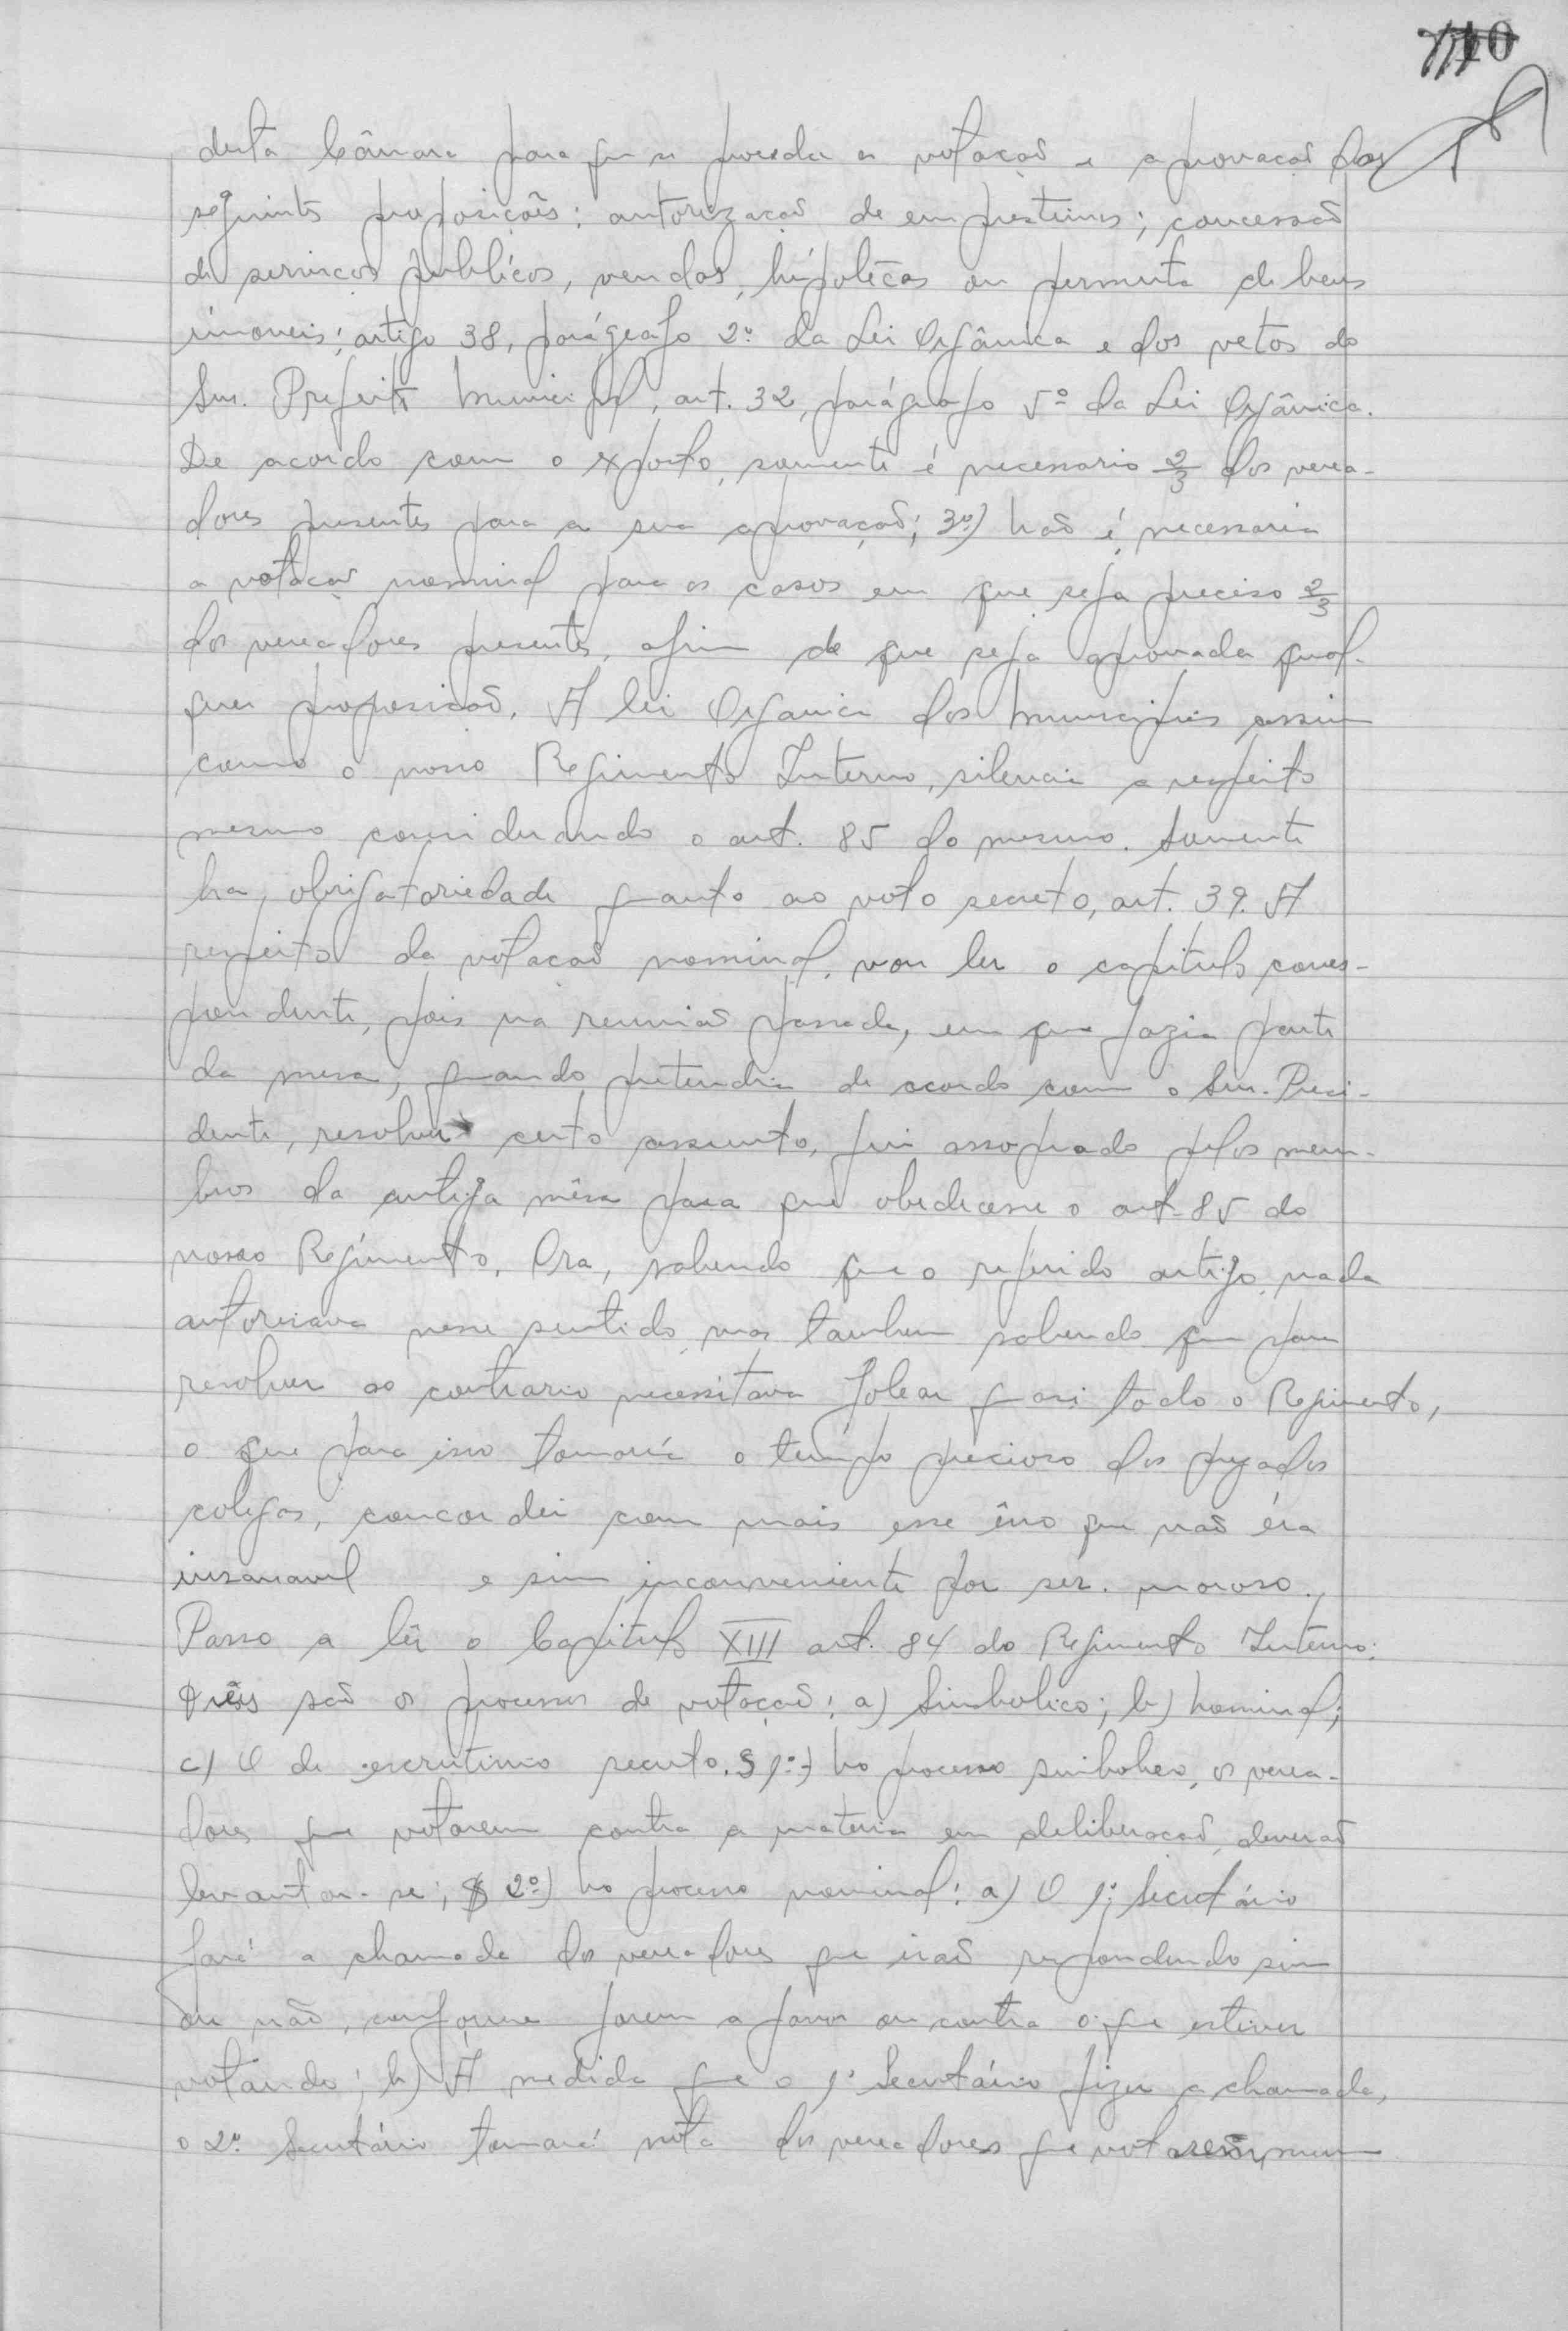 desta Câmara para que se proceda a votação e aprovação das
seguintes proposições: autorização de emprestimos; concessão
de serviços publicos, vendas, hipotécas ou permuta de bens
imoveis; artigo 38, parágrafo 2º da Lei Orgânica e dos vetos do
Snr. Prefeito Municipal, art. 32, parágrafo 5º da Lei Orgânica.
De acordo com o exposto, somente é necessario 2/3 dos verea-
dores presentes para a sua aprovação; 3º) Não é necessaria
a votação nominal para os casos em que seja preciso 2/3
dos vereadores presentes, afim de que seja aprovada qual-
quer proposição. A lei Organica dos Municipios assim
como o nosso Regimento Interno, silencia a respeito
mesmo considerando o art. 85 do mesmo. Somente
ha, obrigatoriedade quanto ao voto secreto, art. 39. A
respeito da votação nominal, vou ler o capitulo corres-
pondente, pois na reunião passada, em que fazia parte
da mesa, quando pretendia de acordo com o Snr. Presi-
dente, resolver certo assunto, fui assoprado pelos mem-
bros da antiga mêsa para que obedecesse o art. 85 do
nosso Regimento. Ora, sabendo que o referido artigo, nada
autorisava nesse sentido, mas tambem sabendo que para
resolver ao contrario necessitava folear quasi todo o Regimento,
o que para isso tomaria o tempo precioso dos prezados
colegas, concordei com mais esse êrro que não éra
insanavel e sim inconveniente por ser moroso.
Passo a lêr o Capitulo XIII art. 84 do Regimento Interno:
três são os processos de votação: a) Simbolico; b) Nominal;
c) O de escrutinio secreto. § 1º-) No processo simbolico, os verea-
dores que votarem contra a materia em deliberação, deverão
levantar-se; § 2º) No processo nominal: a) O 1º Secretário
fará a chamada dos vereadores que irão respondendo sim
ou não, conforme forem a favor ou contra o que estiver
votando; b) A medida que o 1º Secretário fizer a chamada,
o 2º Secretário tomará nota dos vereadores que votarem